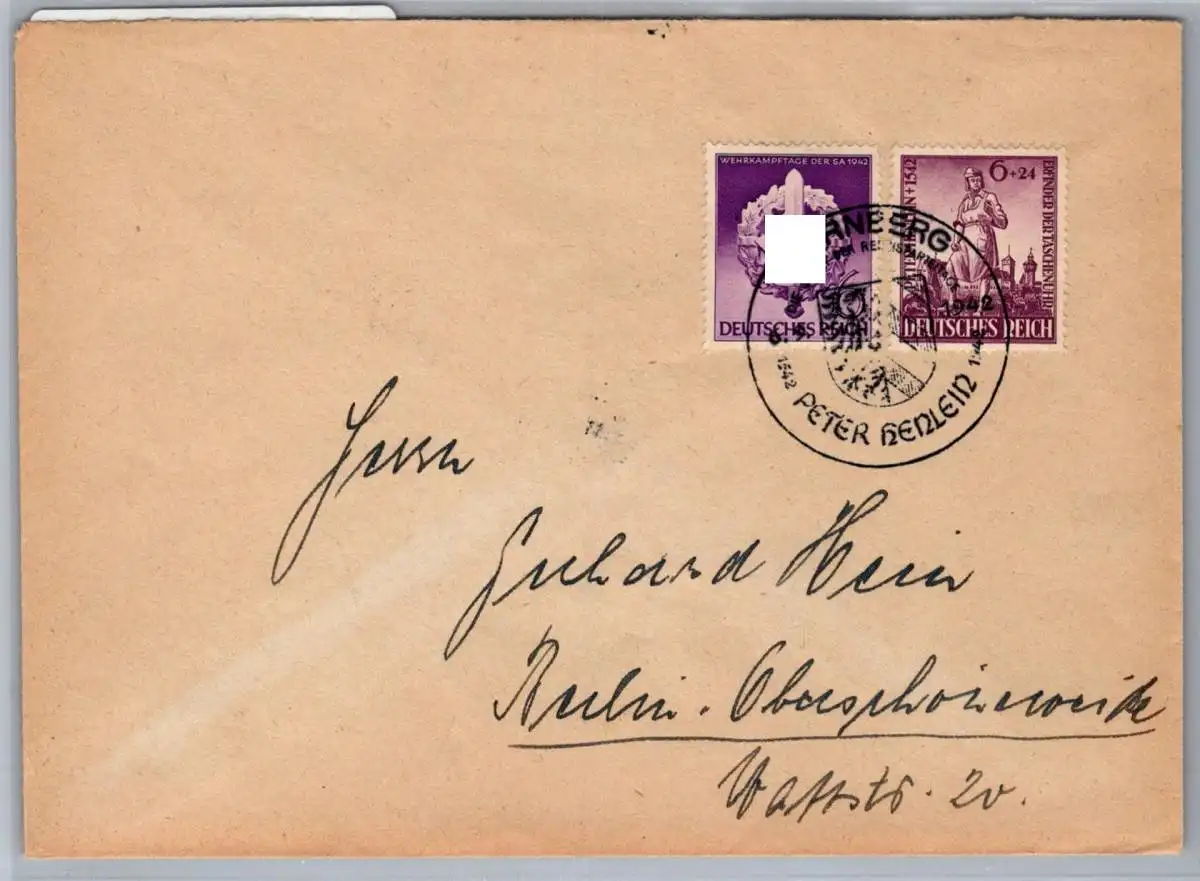 WEHRKAMPFTAGE DER SA 1942
DEUTSCHES REICH
6+24
1542
ERFINDER DER TASCHENUHR
DEUTSCHES REICH
RNBERG
1942
1542 PETER HENLEIN 1942
Herrn
Gerhard Hein
Berlin. Oberschöneweide
Wattstr. 20.